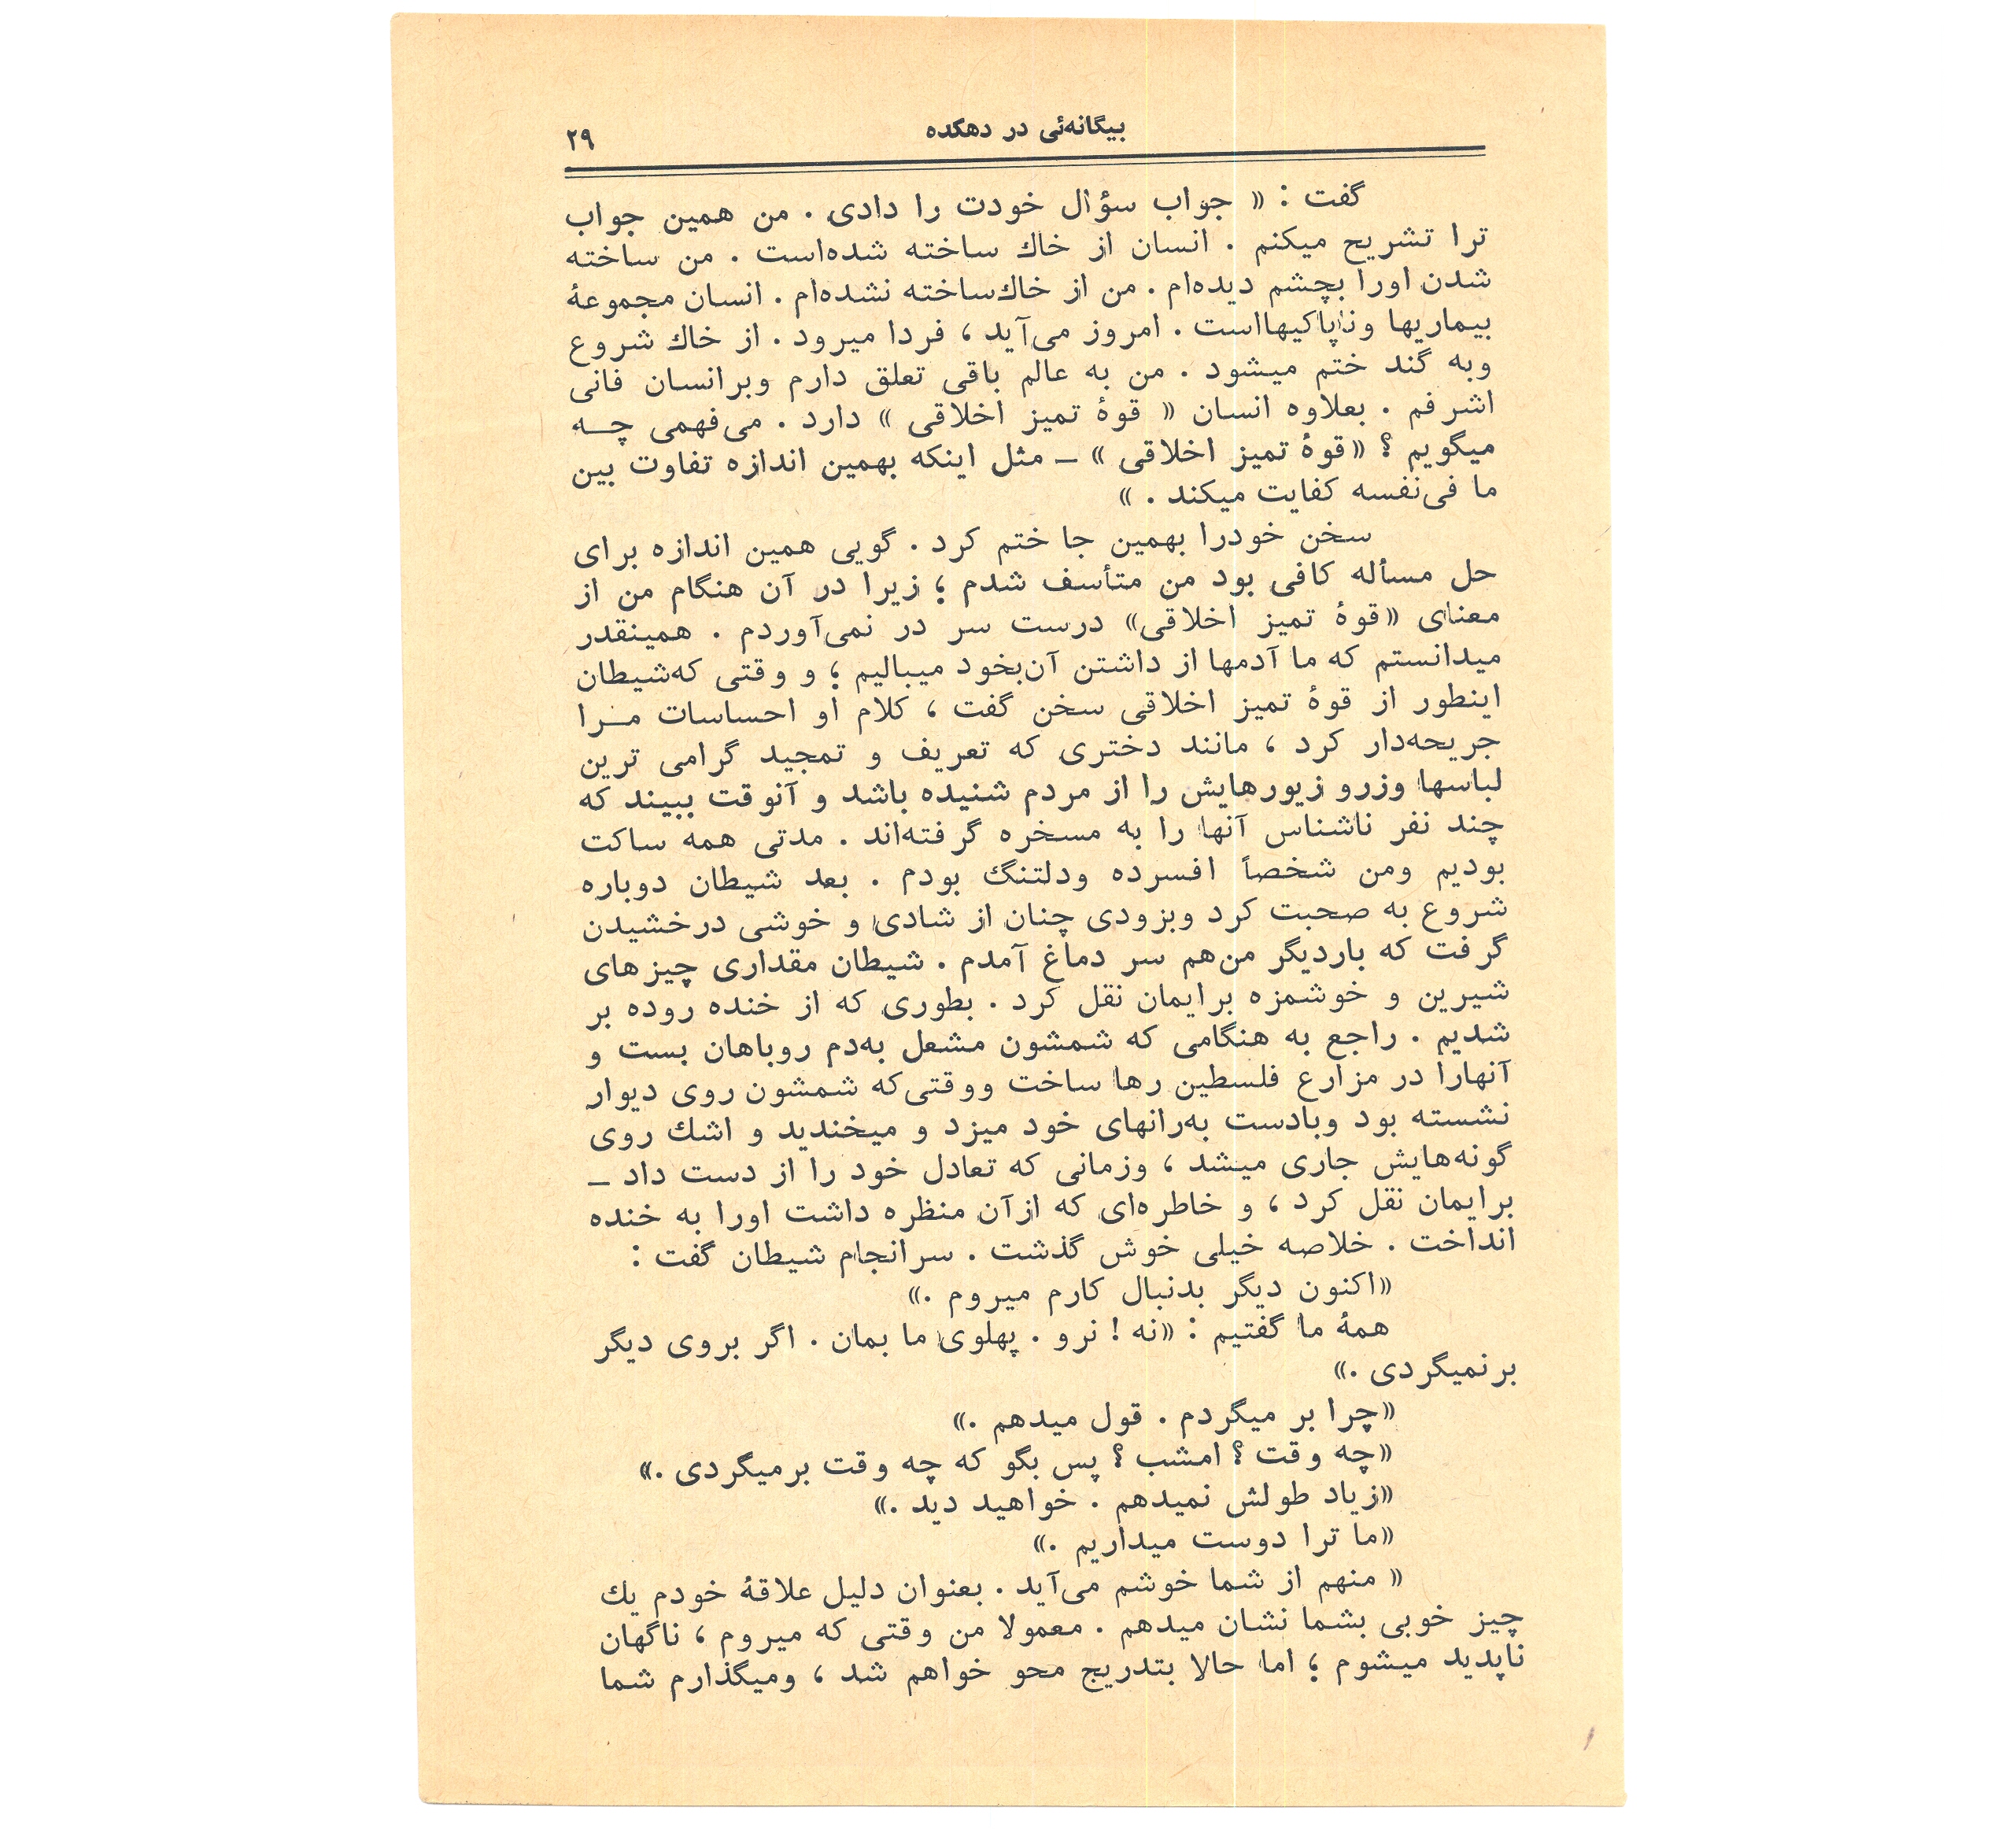 بیگانه‌ئی در دهکده
۲۹
گفت : « جواب سؤال خودت را دادی . من همین جواب
ترا تشریح میکنم . انسان از خاك ساخته شده‌است . من ساخته
شدن اورا بچشم دیده‌ام . من از خاك‌ساخته نشده‌ام . انسان مجموعهٔ
بیماریها وناپاکیهااست . امروز می‌آید ، فردا میرود . از خاك شروع
وبه گند ختم میشود . من به عالم باقی تعلق دارم وبرانسان فانی
اشرفم . بعلاوه انسان « قوهٔ تمیز اخلاقی » دارد . می‌فهمی چـــه
میگویم ؟ «قوهٔ تمیز اخلاقی » ــ مثل اینکه بهمین اندازه تفاوت بین
ما فی‌نفسه کفایت میکند . »
سخن خودرا بهمین جا ختم کرد . گویی همین اندازه برای
حل مسأله کافی بود من متأسف شدم ؛ زیرا در آن هنگام من از
معنای «قوهٔ تمیز اخلاقی» درست سر در نمی‌آوردم . همینقدر
میدانستم که ما آدمها از داشتن آن‌بخود میبالیم ؛ و وقتی که‌شیطان
اینطور از قوهٔ تمیز اخلاقی سخن گفت ، کلام او احساسات مــرا
جریحه‌دار کرد ، مانند دختری که تعریف و تمجید گرامی ترین
لباسها وزرو زیورهایش را از مردم شنیده باشد و آنوقت ببیند که
چند نفر ناشناس آنها را به مسخره گرفته‌اند . مدتی همه ساکت
بودیم ومن شخصاً افسرده ودلتنگ بودم . بعد شیطان دوباره
شروع به صحبت کرد وبزودی چنان از شادی و خوشی درخشیدن
گرفت که باردیگر من‌هم سر دماغ آمدم . شیطان مقداری چیزهای
شیرین و خوشمزه برایمان نقل کرد . بطوری که از خنده روده بر
شدیم . راجع به هنگامی که شمشون مشعل به‌دم روباهان بست و
آنهارا در مزارع فلسطین رها ساخت ووقتی‌که شمشون روی دیوار
نشسته بود وبادست به‌رانهای خود میزد و میخندید و اشك روی
گونه‌هایش جاری میشد ، وزمانی که تعادل خود را از دست داد ــ
برایمان نقل کرد ، و خاطره‌ای که ازآن منظره داشت اورا به خنده
انداخت . خلاصه خیلی خوش گذشت . سرانجام شیطان گفت :
«اکنون دیگر بدنبال کارم میروم .»
همهٔ ما گفتیم : «نه ! نرو . پهلوی ما بمان . اگر بروی دیگر
برنمیگردی .»
«چرا بر میگردم . قول میدهم .»
«چه وقت ؟ امشب ؟ پس بگو که چه وقت برمیگردی .»
«زیاد طولش نمیدهم . خواهید دید .»
«ما ترا دوست میداریم .»
« منهم از شما خوشم می‌آید . بعنوان دلیل علاقهٔ خودم یك
چیز خوبی بشما نشان میدهم . معمولا من وقتی که میروم ، ناگهان
ناپدید میشوم ؛ اما حالا بتدریج محو خواهم شد ، ومیگذارم شما